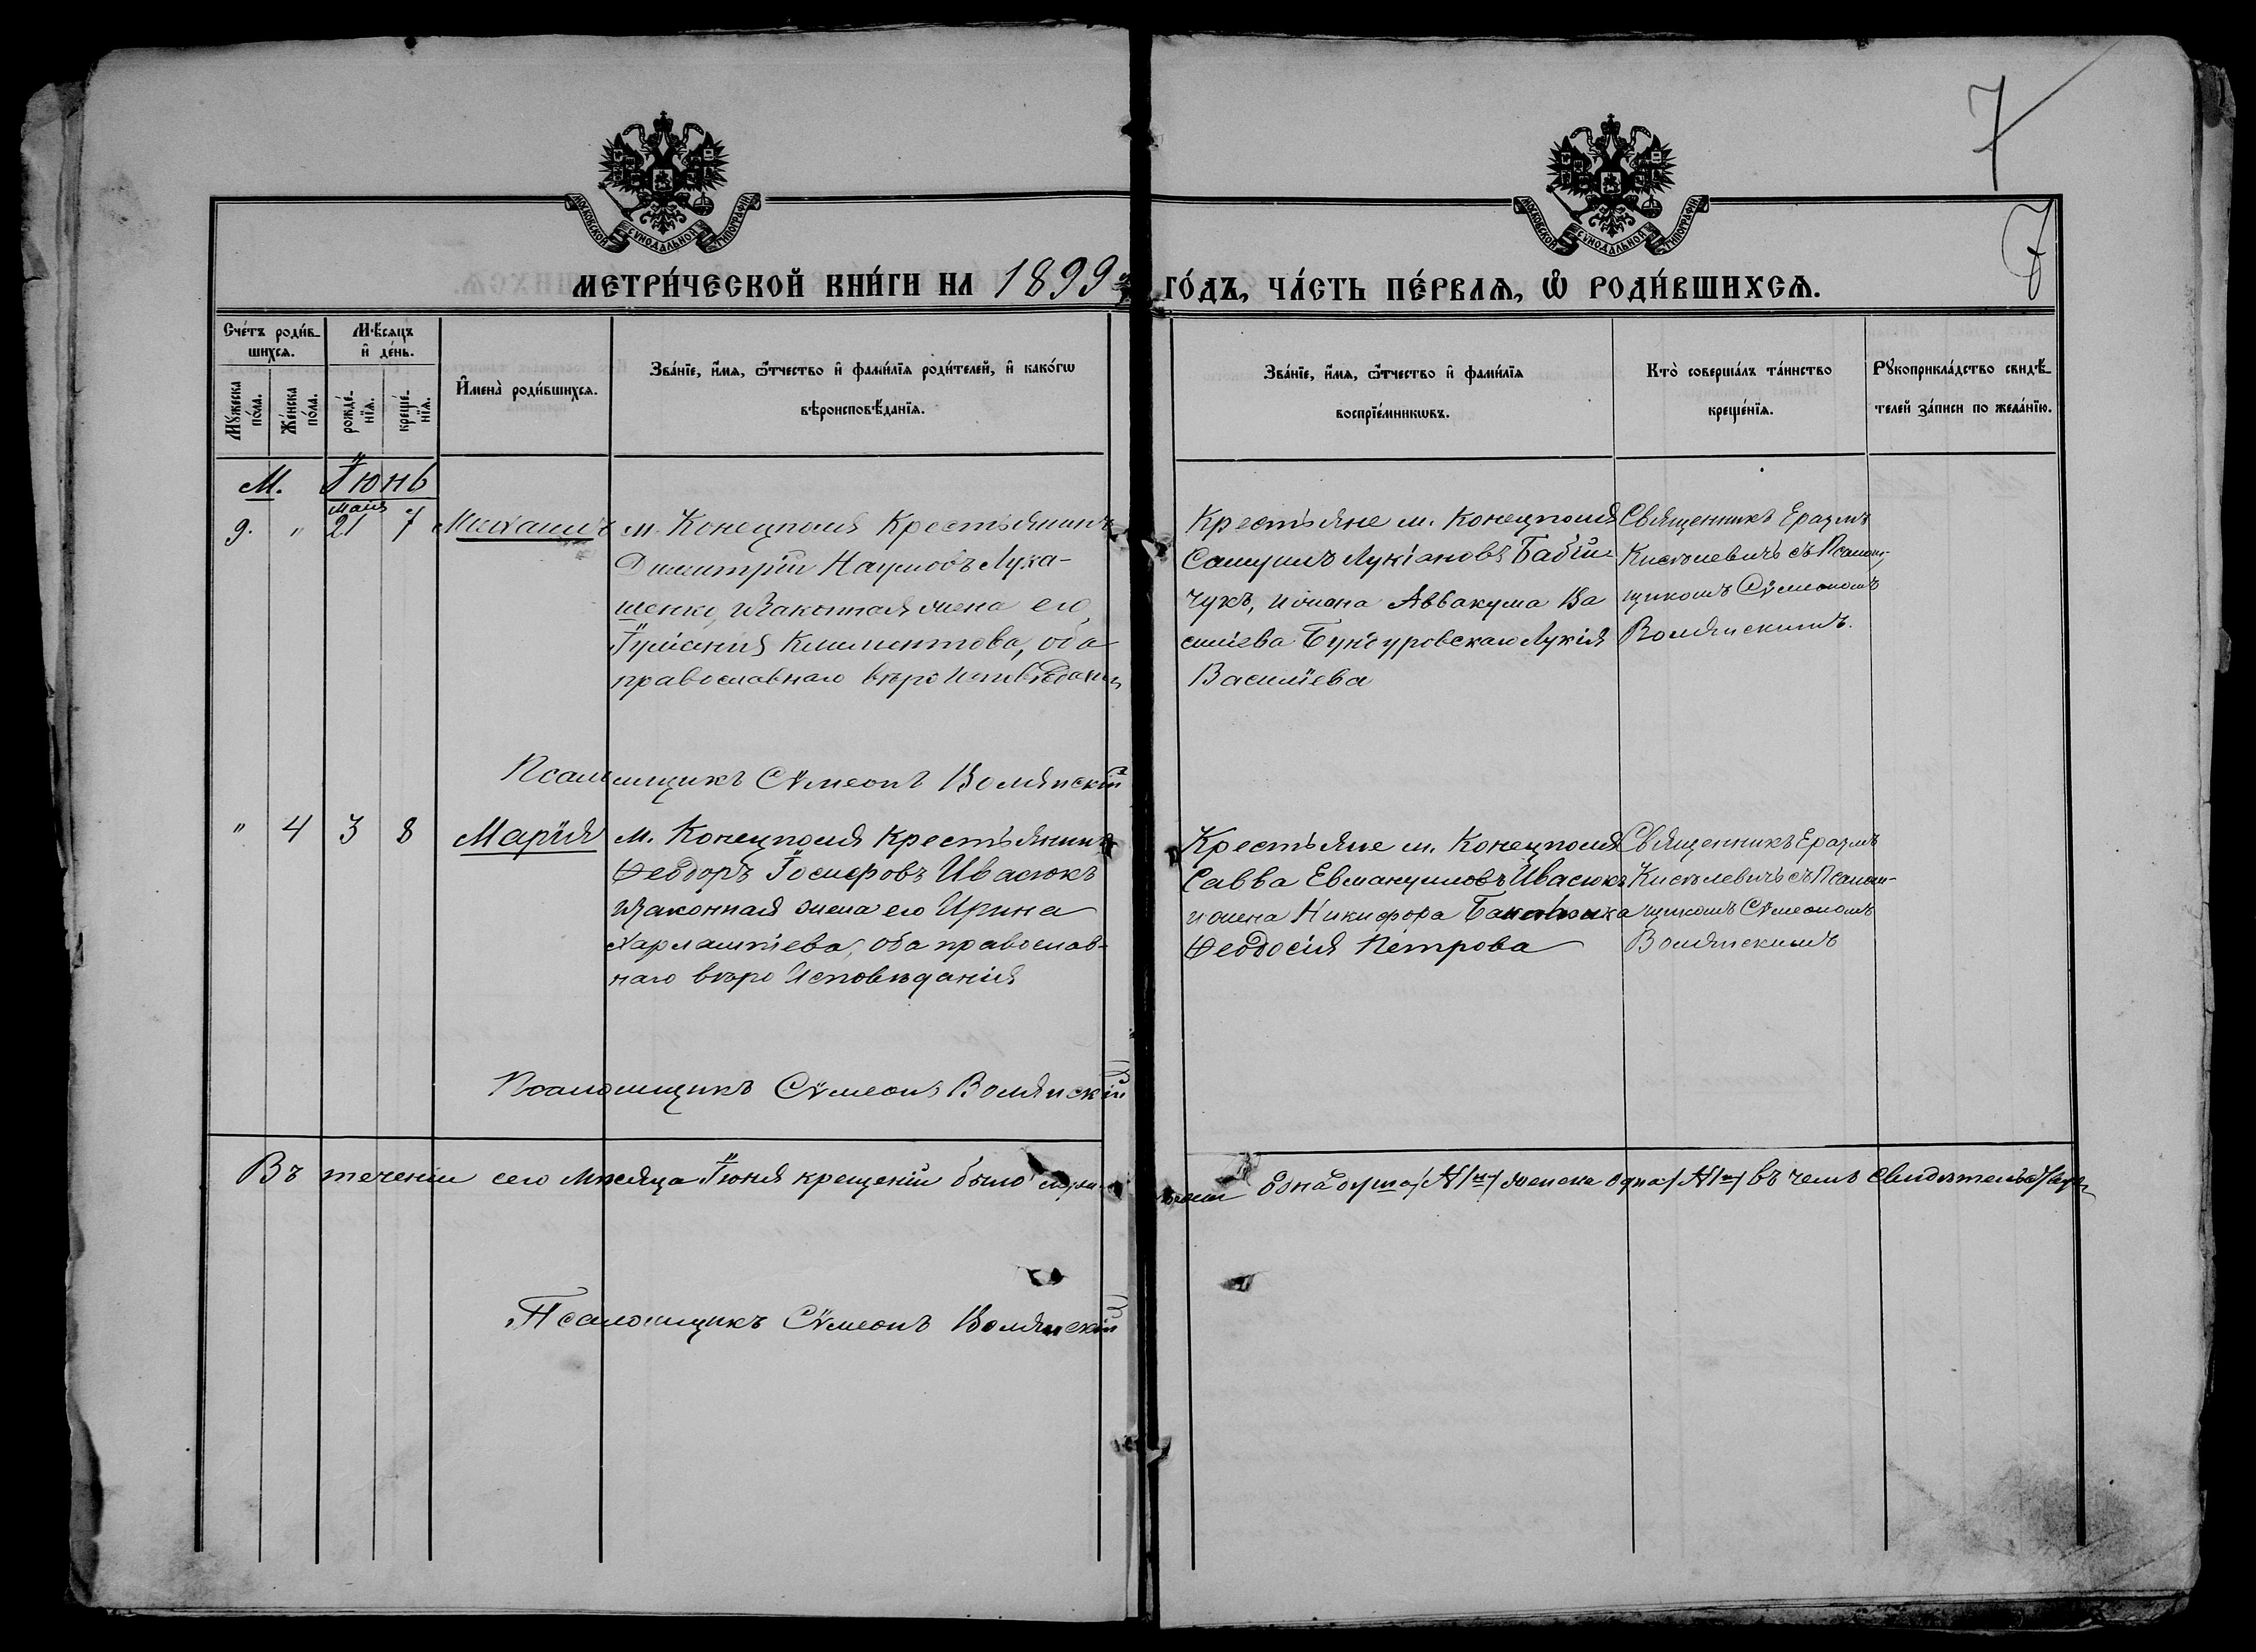 7
МОСКОВСКОЙ СѴНОДАЛЬНОЙ ТИПОГРАФІИ
МОСКОВСКОЙ СѴНОДАЛЬНОЙ ТИПОГРАФІИ
7
МЕТРИ́ЧЕСКОЙ КНИ́ГИ НА 1899й ГО́ДЪ, ЧА́СТЬ ПЕ́РВАѦ, Ѽ РОДИ́ВШИХСѦ.
Сче́тъ роди́в-
шихсѧ.
Мѣ́сѧцъ
и҆ де́нь.
Мꙋжеска по́ла.
Же́нска по́ла.
рожде́-нїѧ.
креще́-нїѧ.
И҆мена̀ роди́вшихсѧ.
Зва́нїе, и҆́мѧ, ѻ҆́тчество и҆ фами́лїѧ роди́телей, и҆ како́гѡ
вѣроисповѣ́данїѧ.
Зва́нїе, и҆́мѧ, ѻ҆́тчество и҆ фами́лїѧ
воспрїе́мникѡвъ.
Кто̀ соверша́лъ та́инство
креще́нїѧ.
Рꙋкоприкла́дство свидѣ́-
телей за́писи по жела́нїю.
М. Іюнь
Маія
9. " 21 7 Михаилъ
м. Конецполя Крестьянинъ
Димитрій Наумовъ Лука-
шенко, и законная жена его
Іуліанія Климентова, оба
православнаго вѣроисповѣданія
Крестьяне м. Конецполя
Самуилъ Лукіановъ Бабій-
чукъ, и жена Аввакума Ва
силіева Бунгуровскаго Лукія
Василіева
Священникъ Еразмъ
Кисѣлевичъ съ Псалом-
щикомъ Сѵмеономъ
Волянскимъ.
Псаломщикъ Сѵмеонъ Волянскій
" 4 3 8 Марія
м. Конецполя Крестьянинъ
Ѳеодоръ Іосифовъ Ивасюкъ
и законная жена его Ирина
Харлампіева, оба православ-
наго вѣроисповѣданія
Крестьяне м. Конецполя
Савва Евмануиловъ Ивасюкъ
и жена Никифора
Ѳеодосія Петрова
Священникъ Еразмъ
Кисѣлевичъ съ Псалом-
щикомъ Сѵмеономъ
Волянскимъ
Псаломщикъ Сѵмеонъ Волянскій
Въ теченіи сего мѣсяца Іюня крещеній было одна душа женска одна въ чемъ
Псаломщикъ Сѵмеонъ Волянскій